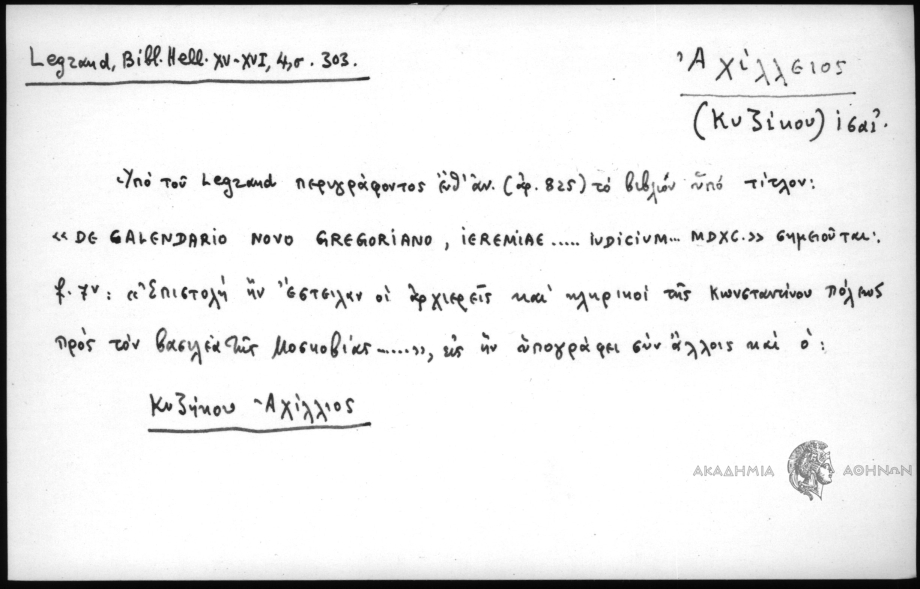 Legrand, Bibl. Hell. XV-XVI, 4, σ. 303.
Ἀχίλλειος
(Κυζίκου) ἱσαί.
Ὑπό τοῦ Legrand περιγράφοντος ἐνθ' ἀν. (ἀρ. 825) τό βιβλίον ὑπό τίτλον:
«DE CALENDARIO NOVO GREGORIANO, IEREMIAE ..... IUDICIUM... MDXC.» σημειοῦται:
f. 7v: «Ἐπιστολή ἥν ἔστειλαν οἱ ἀρχιερεῖς καί κληρικοί τῆς Κωνσταντίνου πόλεως
πρός τόν βασιλέα τῆς Μοσκοβίας......», εἰς ἥν ὑπογράφει σύν ἄλλοις καί ὁ:
Κυζήκου Ἀχίλλιος
ΑΚΑΔΗΜΙΑ ΑΘΗΝΩΝ